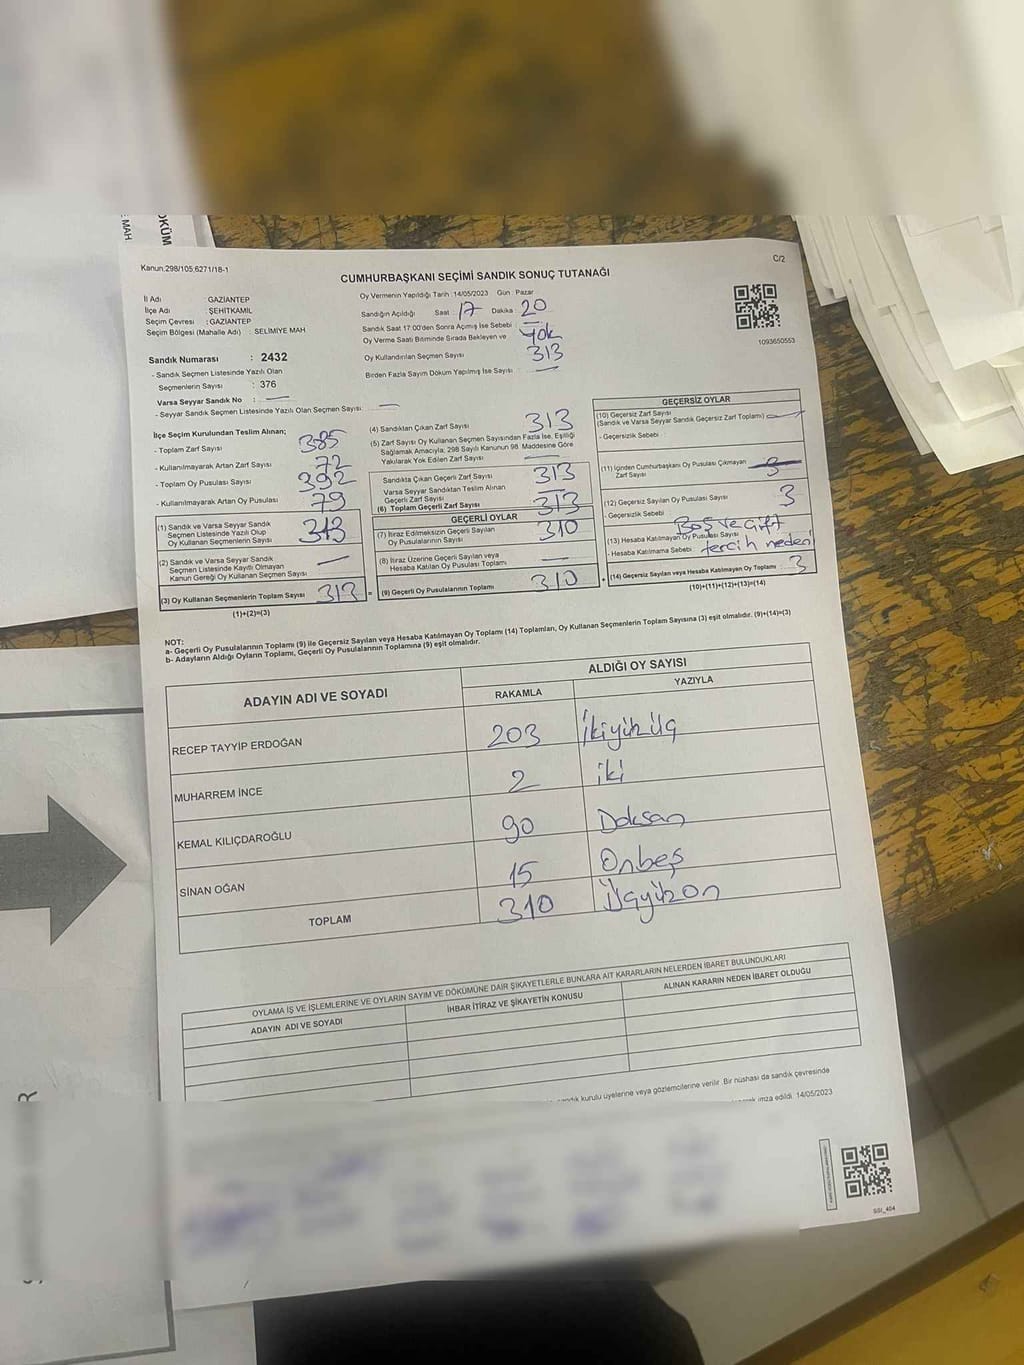 DKÜM
MAH.
Kanun:298/105,6271/18-1
C/2
CUMHURBAŞKANI SEÇİMİ SANDIK SONUÇ TUTANAĞI
İl Adı : GAZİANTEP
İlçe Adı : ŞEHİTKAMİL
Seçim Çevresi : GAZİANTEP
Seçim Bölgesi (Mahalle Adı) : SELİMİYE MAH
Sandık Numarası : 2432
- Sandık Seçmen Listesinde Yazılı Olan
Seçmenlerin Sayısı : 376
Varsa Seyyar Sandık No : —
- Seyyar Sandık Seçmen Listesinde Yazılı Olan Seçmen Sayısı : —
Oy Vermenin Yapıldığı Tarih : 14/05/2023 Gün : Pazar
Sandığın Açıldığı Saat : 17 Dakika : 20
Sandık Saat 17:00'den Sonra Açmış İse Sebebi : —
Oy Verme Saati Bitiminde Sırada Bekleyen ve Yok
Oy Kullandırılan Seçmen Sayısı 313
Birden Fazla Sayım Döküm Yapılmış İse Sayısı : —
1093650553
İlçe Seçim Kurulundan Teslim Alınan;
- Toplam Zarf Sayısı : 385
- Kullanılmayarak Artan Zarf Sayısı : 72
- Toplam Oy Pusulası Sayısı : 392
- Kullanılmayarak Artan Oy Pusulası : 79
(1) Sandık ve Varsa Seyyar Sandık
Seçmen Listesinde Yazılı Olup
Oy Kullanan Seçmenlerin Sayısı 313
(2) Sandık ve Varsa Seyyar Sandık
Seçmen Listesinde Kayıtlı Olmayan
Kanun Gereği Oy Kullanan Seçmen Sayısı —
(3) Oy Kullanan Seçmenlerin Toplam Sayısı 313
(1)+(2)=(3)
(4) Sandıktan Çıkan Zarf Sayısı : 313
(5) Zarf Sayısı Oy Kullanan Seçmen Sayısından Fazla İse, Eşitliği
Sağlamak Amacıyla; 298 Sayılı Kanunun 98. Maddesine Göre
Yakılarak Yok Edilen Zarf Sayısı : —
Sandıkta Çıkan Geçerli Zarf Sayısı 313
Varsa Seyyar Sandıktan Teslim Alınan
Geçerli Zarf Sayısı —
(6) Toplam Geçerli Zarf Sayısı 313
GEÇERLİ OYLAR
(7) İtiraz Edilmeksizin Geçerli Sayılan
Oy Pusulalarının Sayısı 310
(8) İtiraz Üzerine Geçerli Sayılan veya
Hesaba Katılan Oy Pusulası Toplamı —
= (9) Geçerli Oy Pusulalarının Toplamı 310
GEÇERSİZ OYLAR
(10) Geçersiz Zarf Sayısı
(Sandık ve Varsa Seyyar Sandık Geçersiz Zarf Toplamı) —
- Geçersizlik Sebebi :
(11) İçinden Cumhurbaşkanı Oy Pusulası Çıkmayan
Zarf Sayısı
(12) Geçersiz Sayılan Oy Pusulası Sayısı 3
- Geçersizlik Sebebi : Boş ve çift
(13) Hesaba Katılmayan Oy Pusulası Sayısı
- Hesaba Katılmama Sebebi : tercih nedeni
+ (14) Geçersiz Sayılan veya Hesaba Katılmayan Oy Toplamı 3
(10)+(11)+(12)+(13)=(14)
NOT:
a- Geçerli Oy Pusulalarının Toplamı (9) ile Geçersiz Sayılan veya Hesaba Katılmayan Oy Toplamı (14) Toplamları, Oy Kullanan Seçmenlerin Toplam Sayısına (3) eşit olmalıdır. (9)+(14)=(3)
b- Adayların Aldığı Oyların Toplamı, Geçerli Oy Pusulalarının Toplamına (9) eşit olmalıdır.
ADAYIN ADI VE SOYADI
ALDIĞI OY SAYISI
RAKAMLA YAZIYLA
RECEP TAYYİP ERDOĞAN 203 İkiyüzüç
MUHARREM İNCE 2 iki
KEMAL KILIÇDAROĞLU 90 Doksan
SİNAN OĞAN 15 Onbeş
TOPLAM 310 Üçyüzon
OYLAMA İŞ VE İŞLEMLERİNE VE OYLARIN SAYIM VE DÖKÜMÜNE DAİR ŞİKAYETLERLE BUNLARA AİT KARARLARIN NELERDEN İBARET BULUNDUKLARI
ADAYIN ADI VE SOYADI İHBAR İTİRAZ VE ŞİKAYETİN KONUSU ALINAN KARARIN NEDEN İBARET OLDUĞU
sandık kurulu üyelerine veya gözlemcilerine verilir. Bir nüshası da sandık çevresinde
imza edildi. 14/05/2023
SSI_404
R